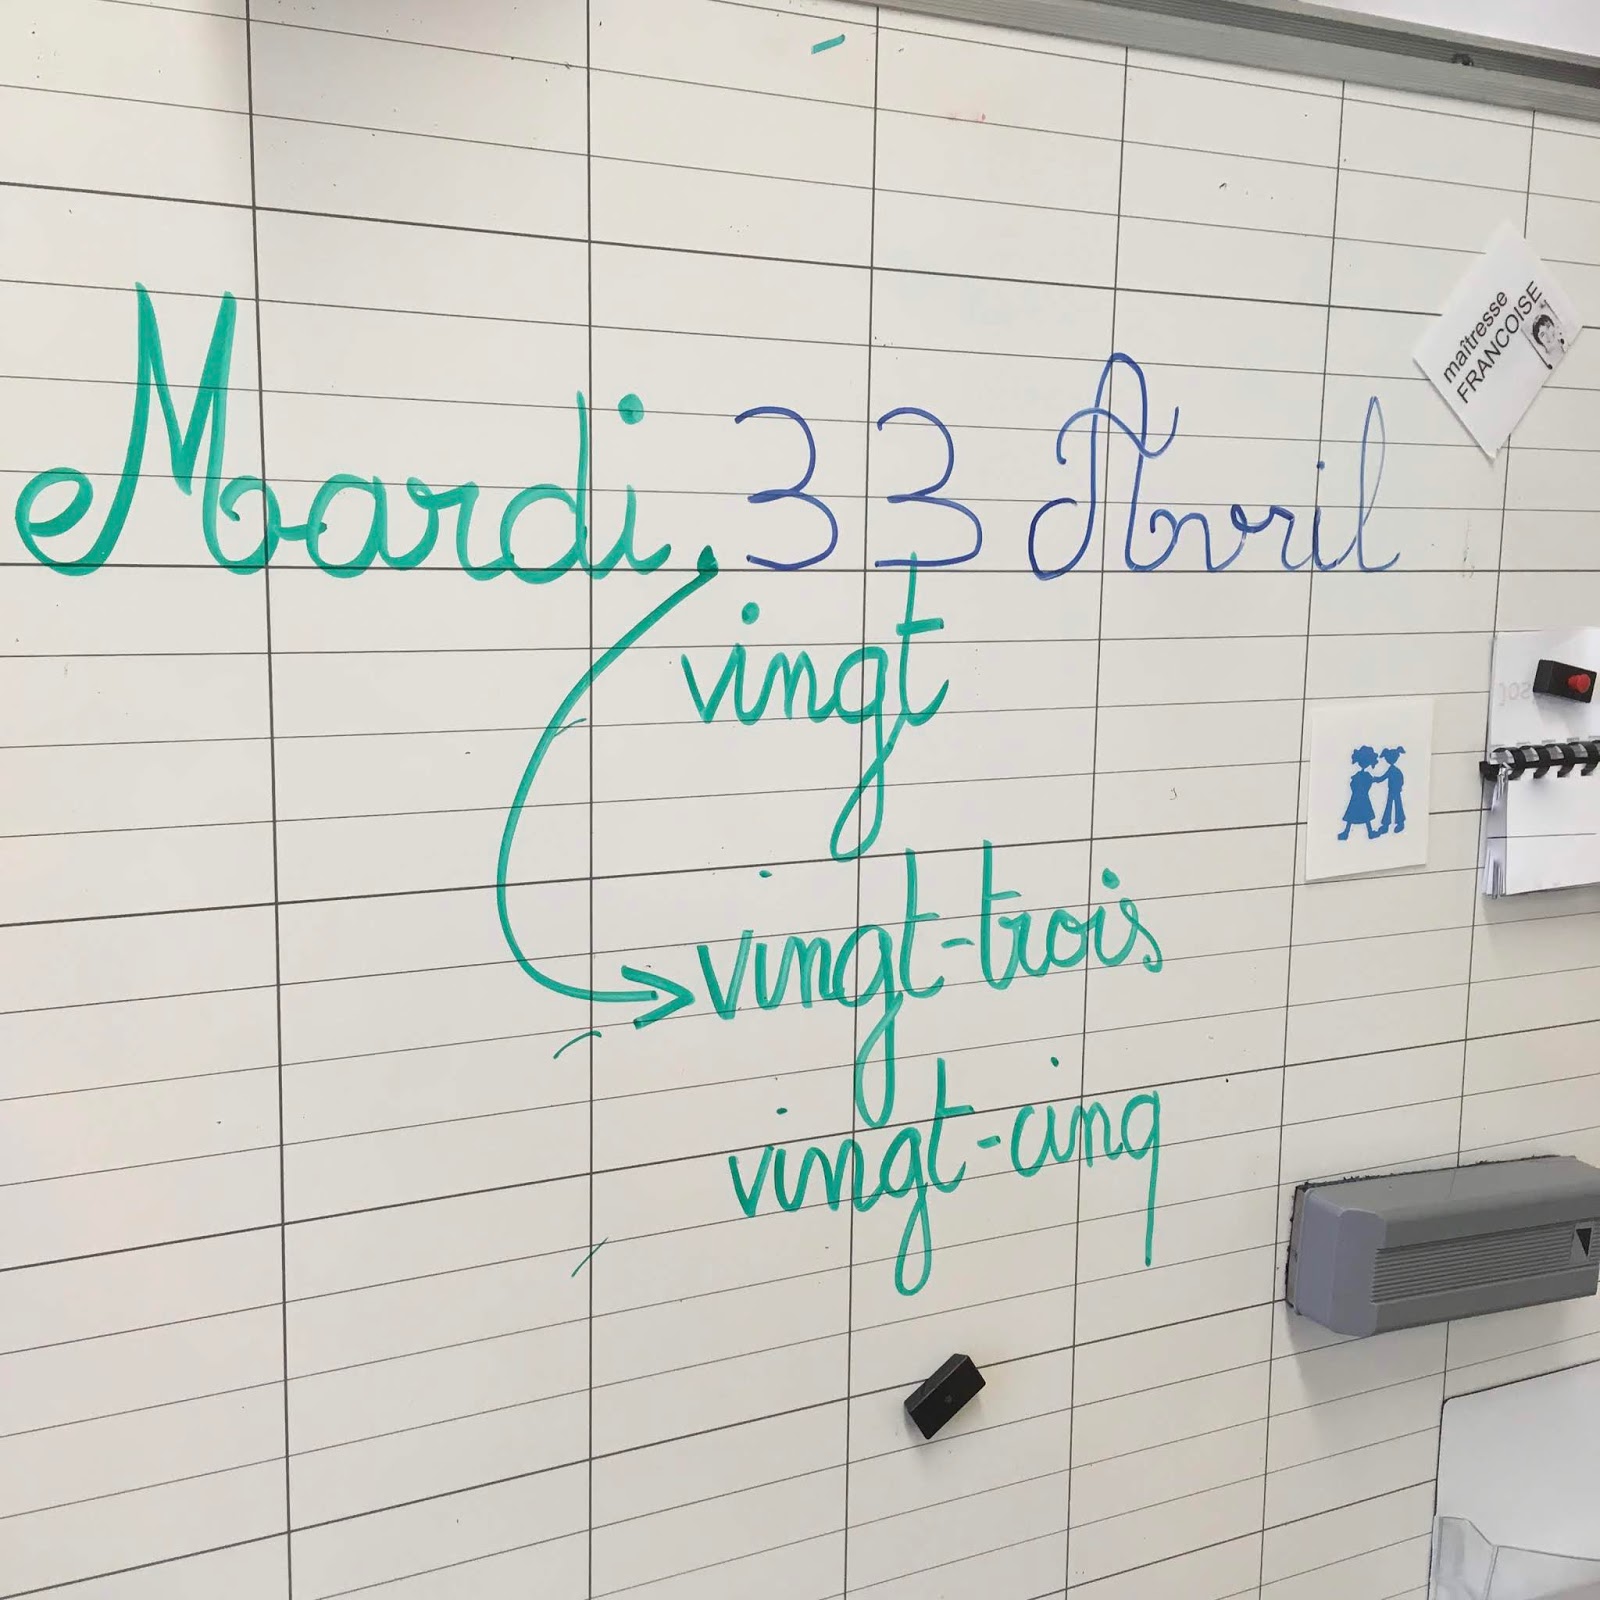 Mardi, 33 Avril
vingt
vingt-trois
vingt-cinq
maîtresse
FRANCOISE